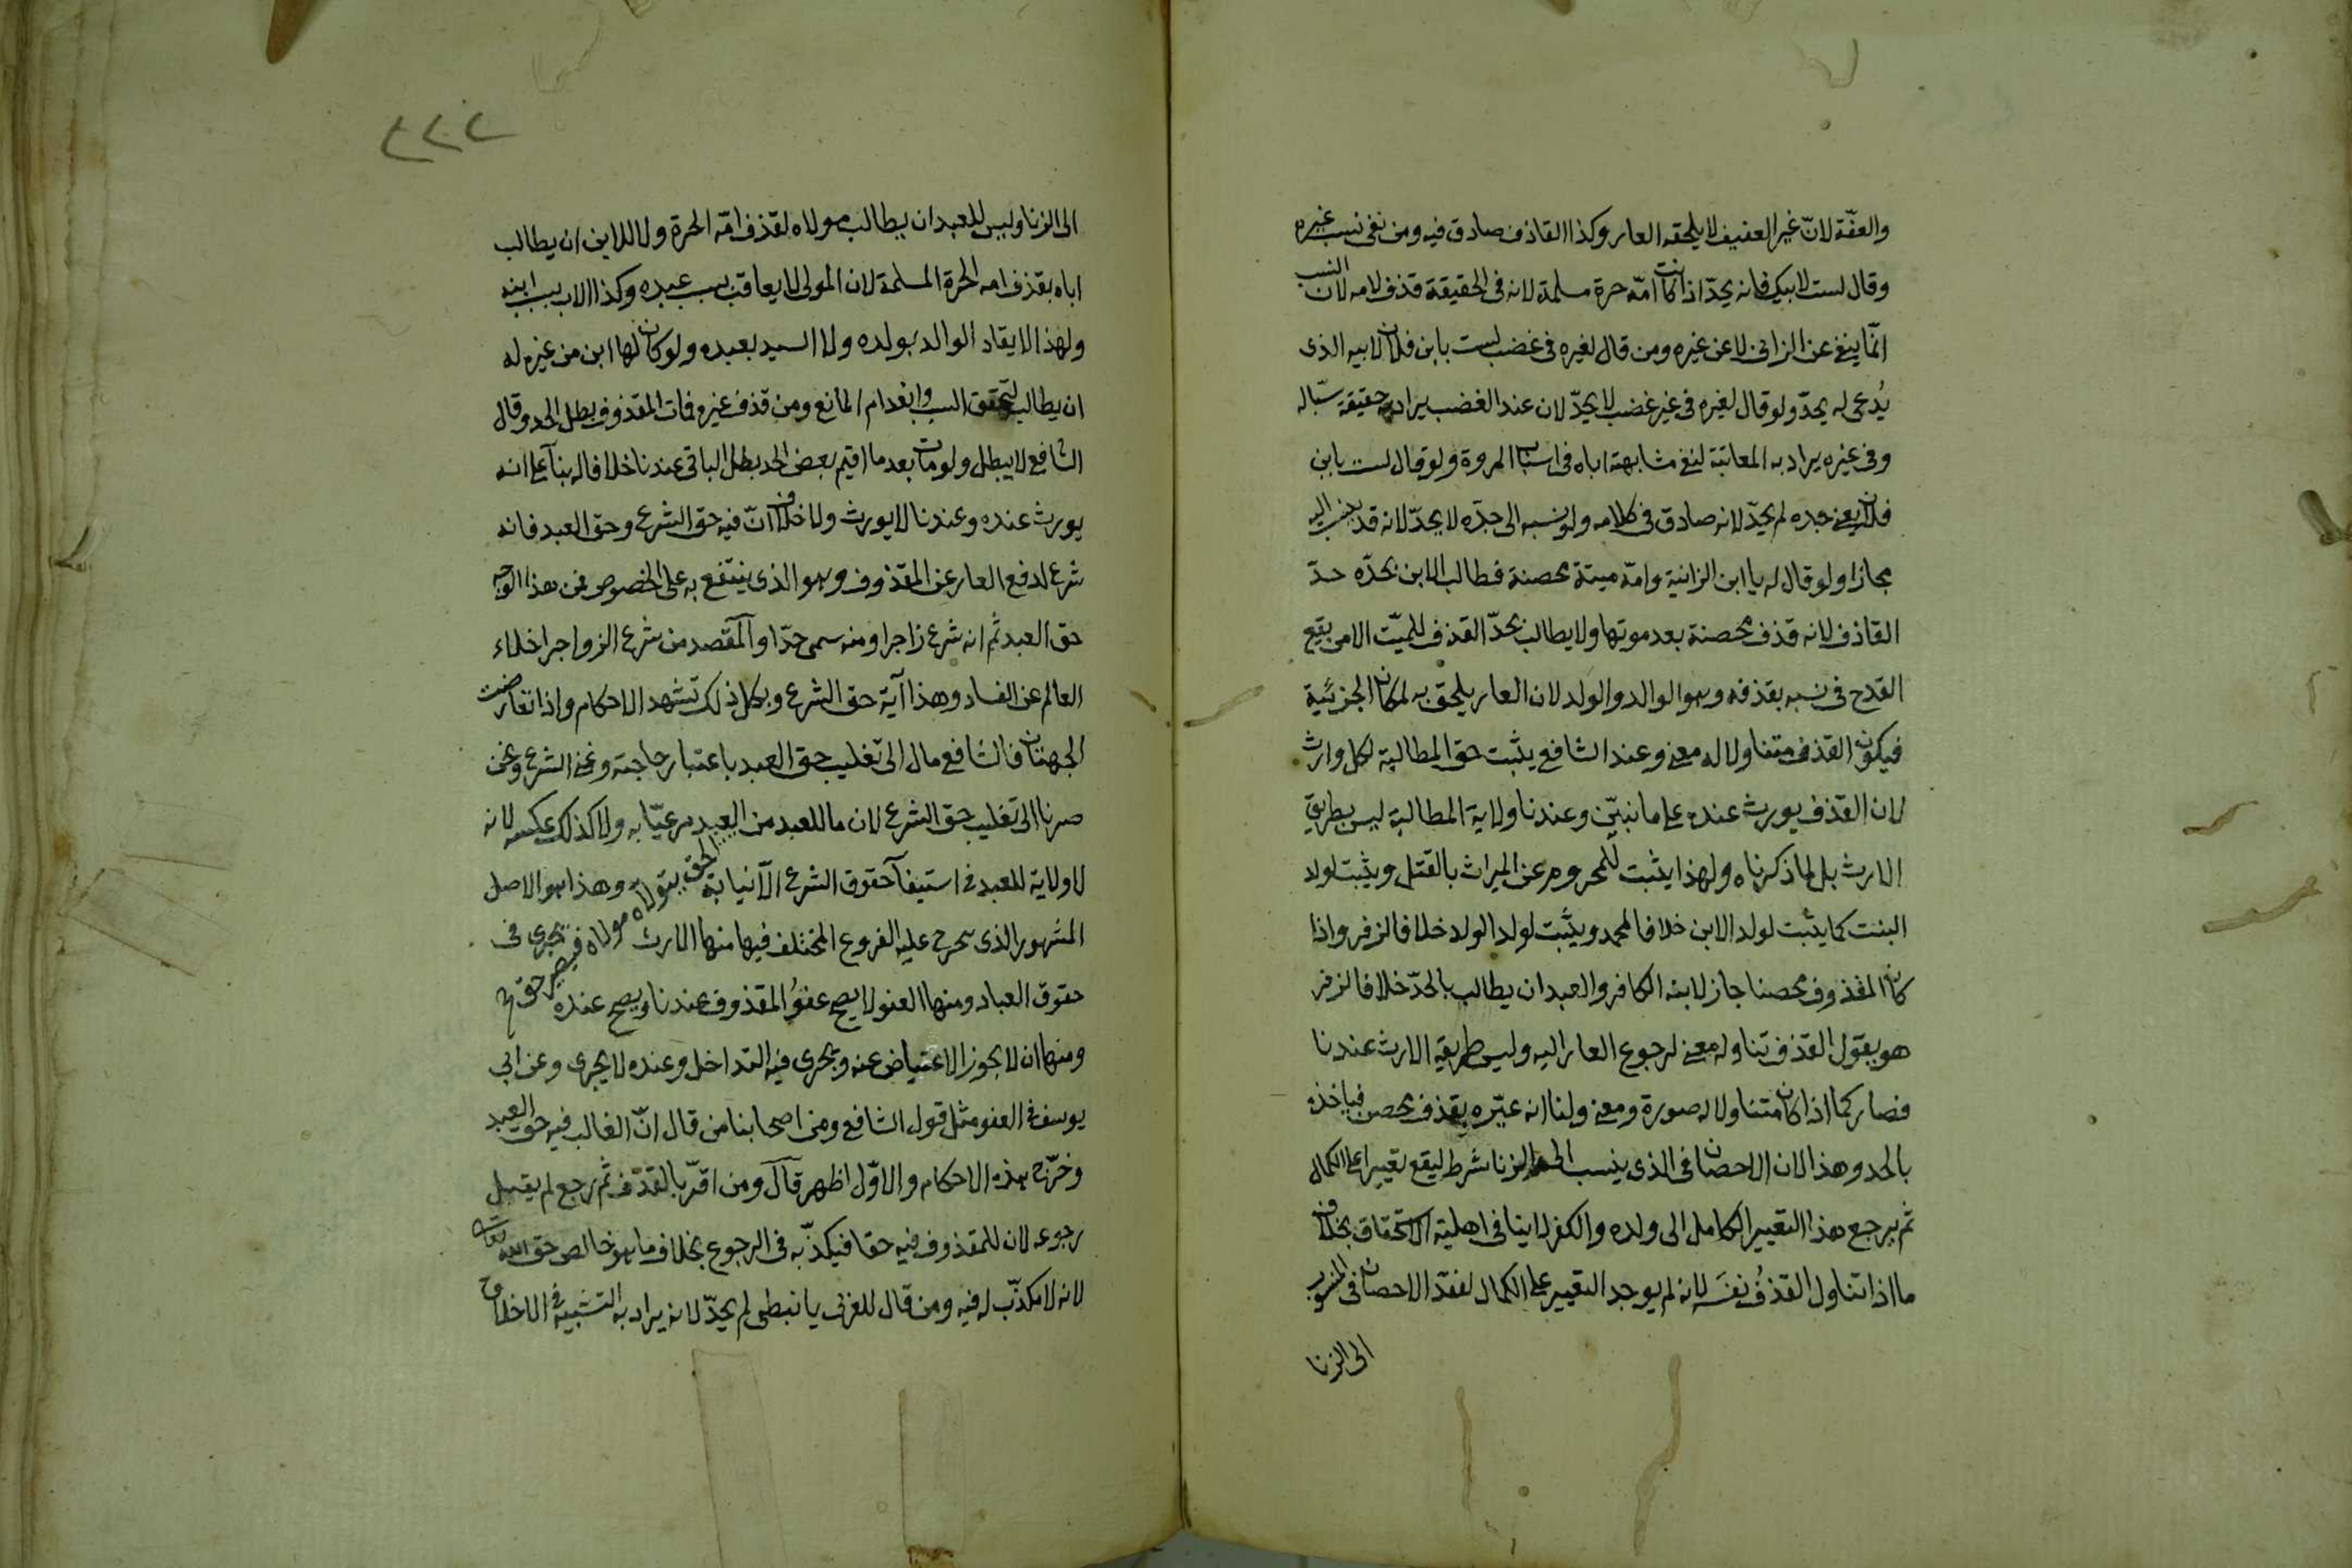 والعفّة لانّ غير العفيف لا يلحقه العار وكذا القاذف صادق فيه ومن نفى نسب غيره
وقال لست لابيك فانه يحدّ اذا كانت امّه حرة مسلمة لانه فى الحقيقة قذف لامه لان النسب
انّما ينفى عن الزانى لا عن غيره ومن قال لغيره فى غضب لست بابن فلان لابيه الذى
يُدعى له يحدّ ولو قال لغيره فى غير غضب لا يحدّ لان عند الغضب يراد به حقيقة سبّا له
وفى غيره يراد به المعاتبة لنفى مشابهته اباه فى اسباب المروة ولو قال لست بابن
فلان يعنى جده لم يحدّ لانه صادق فى كلامه ولو نسبه الى جدّه لا يحدّ لانه قد ينسب اليه
مجازا ولو قال له يا ابن الزانية وامّه ميتة محصنة فطالب الابن بحدّه حدّ
القاذف لانه قذف محصنة بعد موتها ولا يطالب بحدّ القذف للميّت الا من يقع
القدح فى نسبه بقذفه وهو الوالد والولد لان العار يلحق به لمكان الجزئية
فيكون القذف متناولا له معنى وعند الشافعى يثبت حق المطالبة لكل وارث
لان القذف يورث عنده على ما نبيّن وعندنا ولاية المطالبة ليس بطريق
الارث بل لما ذكرناه ولهذا يثبت للمحروم عن الميراث بالقتل ويثبت لولد
البنت كما يثبت لولد الابن خلافا لمحمد ويثبت لولد الولد خلافا لزفر واذا
كان المقذوف محصنا جاز لابنه الكافر والعبد ان يطالب بالحدّ خلافا لزفر
هو يقول القذف تناوله معنى لرجوع العار اليه وليس طريقه الارث عندنا
فصار كما اذا كان متناولا له صورة ومعنى ولنا انه عيّره بقذف محصن فياخذه
بالحد وهذا لان الاحصان فى الذى ينسب الى الزنا شرط ليقع تعييرا على الكمال
ثم يرجع هذا التعيير الكامل الى ولده والكفر لا ينافى اهلية الاستحقاق بخلاف
ما اذا تناول القذفُ نفسَه لانه لم يوجد التعيير على الكمال لفقد الاحصان فى المنسوب
الى الزنا
٢٢٢
الى الزنا وليس للعبد ان يطالب مولاه لقذف امّه الحرة ولا للابن ان يطالب
اباه بقذف امه الحرة المسلمة لان المولى لا يعاقب بسبب عبده وكذا الاب بسبب ابنه
ولهذا لا يقاد الوالد بولده ولا السيد بعبده ولو كان لها ابن من غيره له
ان يطالب لتحقق السبب وانعدام المانع ومن قذف غيره فمات المقذوف بطل الحد وقال
الشافعى لا يبطل ولو مات بعد ما اقيم بعض الحد بطل الباقى عندنا خلافا له بنآء على انه
يورث عنده وعندنا لا يورث ولا خلاف انّ فيه حق الشرع وحق العبد فانه
شرع لدفع العار عن المقذوف وهو الذى ينتفع به على الخصوص فمن هذا الوجه
حق العبد ثم انه شرع زاجرا ومنه سمى حدّا والمقصد من شرع الزواجر اخلاء
العالم عن الفساد وهذا آية حق الشرع وبكل ذلك تشهد الاحكام واذا تعارضت
الجهتان فالشافعى مال الى تغليب حق العبد باعتبار حاجته وغنى الشرع ونحن
صرنا الى تغليب حق الشرع لان ما للعبد من الحق يتولاه مولاه فيصير حق العبد مرعيّا به ولا كذلك عكسه لانه
لا ولاية للعبد فى استيفآ حقوق الشرع الا نيابة وهذا هو الاصل
المشهور الذى يخرج عليه الفروع المختلف فيها منها الارث فيجرى فى
حقوق العباد ومنها العفو لا يصح عفوُ المقذوف عندنا ويصح عنده
ومنها ان لا يجوز الاعتياض عنه ويجرى فيه التداخل وعنده لا يجرى وعن ابى
يوسف فى العفو مثل قول الشافعى ومن اصحابنا من قال انّ الغالب فيه حق العبد
وخرّج هذه الاحكام والاوّل اظهر قآل ومن اقرّ بالقذف ثم رجع لم يقبل
رجوعه لان للمقذوف فيه حقا فيكذّبه فى الرجوع بخلاف ما هو خالص حق الله تعالى
لانه لا مكذّب له فيه ومن قال للعربى يا نبطى لم يحدّ لانه يراد به التشبيه فى الاخلاق